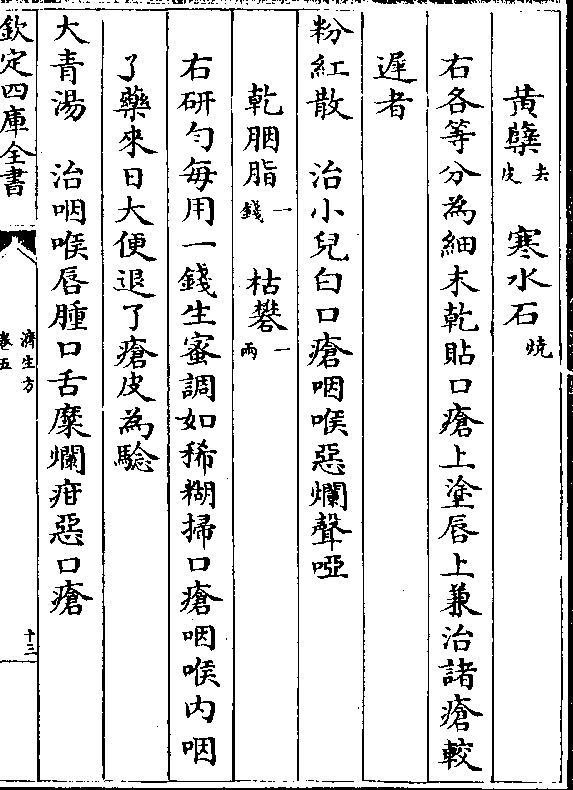 黃蘗去皮　寒水石燒
右各等分為細末乾貼口瘡上塗唇上兼治諸瘡較
遲者
粉紅散　治小兒白口瘡咽喉惡爛聲啞
乾胭脂一錢　枯礬一兩
右研勻每用一錢生蜜調如稀糊掃口瘡咽喉内咽
了藥來日大便退了瘡皮為驗
大青湯　治咽喉唇腫口舌糜爛疳惡口瘡
欽定四庫全書
濟生方
卷五
十三